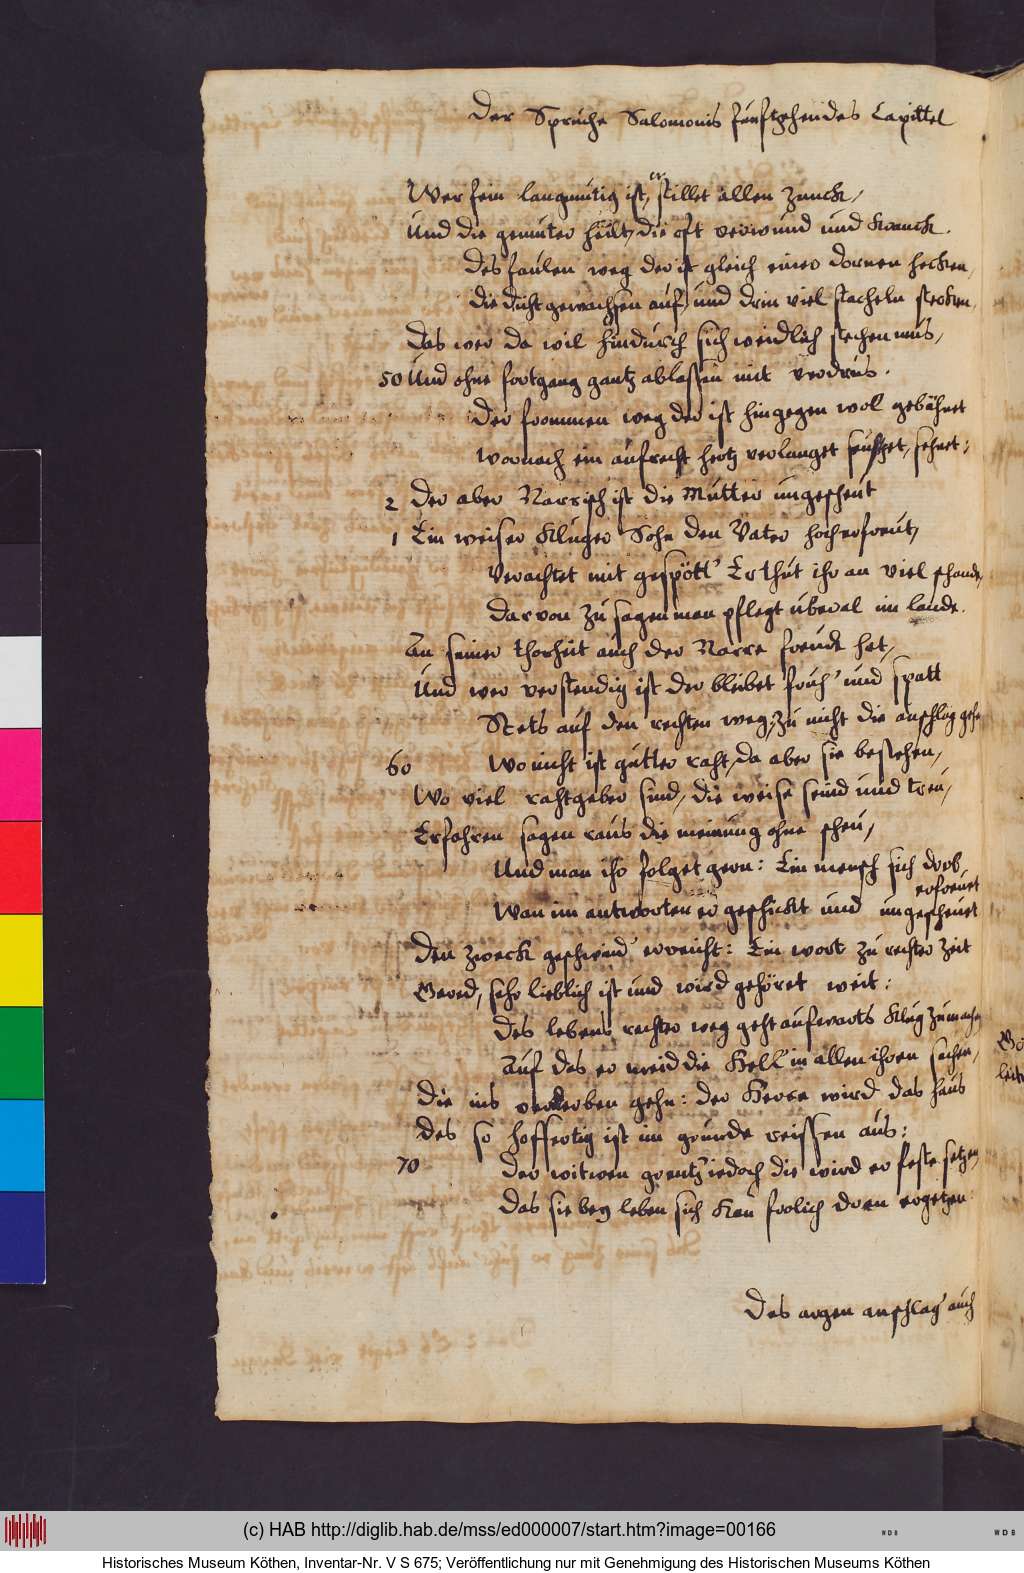 Der Spruche Salomonis funftzehendes Capittel
Wer fein langmutig ist, er stillet allen Zanck,
Und die gemuter heilt, die oft verwund und Kranck.
Des faulen weg der ist gleich einer dornen hecken,
die dicht gewachsen auf, und drin viel stacheln stecken,
Das wer da wil hindurch sich weidlich stechen mus,
50 Und ohne fortgang gantz ablassen mit verdrus.
Der frommen weg der ist hingegen wol gebähnet
wornach ein aufrecht hertz verlanget seufftzet, sehnet:
2 Der aber Narrisch ist die Mutter ungescheut
1 Ein weiser Kluger Sohn den Vater hocherfreut,
Verachtet mit gespött' Er thut ihr an viel schande,
Darvon zu sagen man pflegt uberal im lande.
An seiner thorheit auch der Narre freude hat,
Und wer verstendig ist der bleibet fruh' und spatt
Stets auf den rechten weg, zu nicht die anschlag gehen
60 Wo nicht ist gutter raht, da aber sie bestehen,
Wo viel rahtgeber sind, die weise seind und treu,
Erfahren sagen raus die meinung ohne scheu,
Und man ihr folget gern: Ein mensch sich drob
erfreuet
Wan im antworten er geschickt und ungescheuet
Den zweck geschwind' erreicht: Ein wort zu rechter Zeit
Gered, sehr lieblich ist und wird gehöret weit:
Des lebens rechter weg geht aufwarts Klug zumachen
Auf das er meid die Hell' in allen ihren sachen,
Die ins verderben gehn: der Herre wird das haus
des so hoffertig ist im grunde reissen aus:
70 Der witwen grentz' iedoch die wird er feste setzen,
Das sie bey leben sich Kan frolich dran ergetzen
Des argen anschlag' auch
(c) HAB http://diglib.hab.de/mss/ed000007/start.htm?image=00166
WDB
WDB
Historisches Museum Köthen, Inventar-Nr. V S 675; Veröffentlichung nur mit Genehmigung des Historischen Museums Köthen